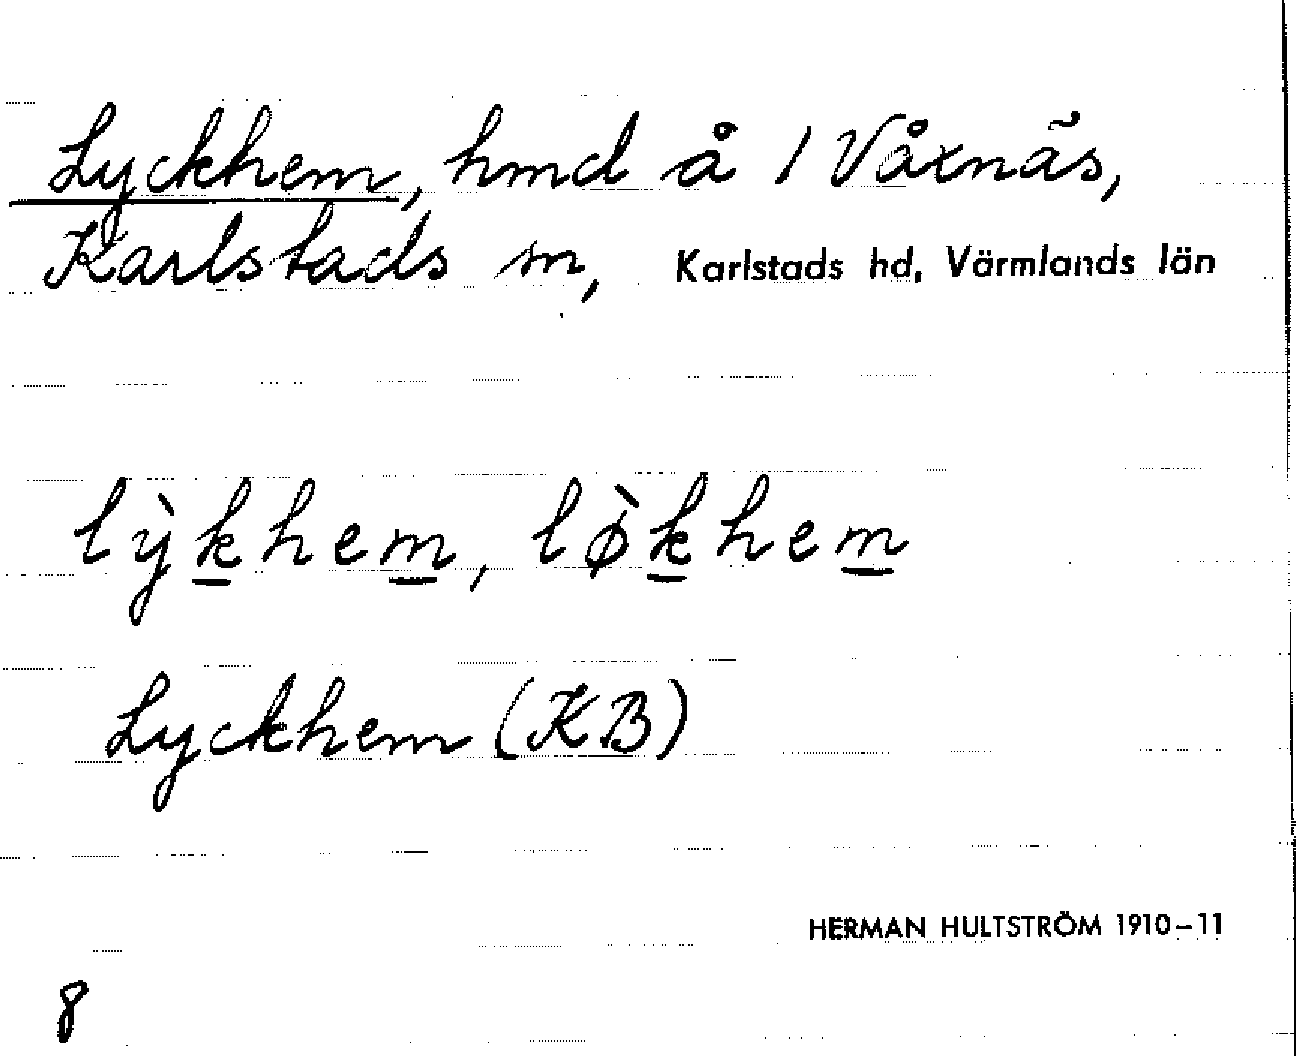 Lyckhem, hmd å 1 Våxnäs,
Karlstads sn, Karlstads hd, Värmlands län
lỳk̲hem̲, lø̀k̲hem̲
Lyckhem (KB)
HERMAN HULTSTRÖM 1910–11
8